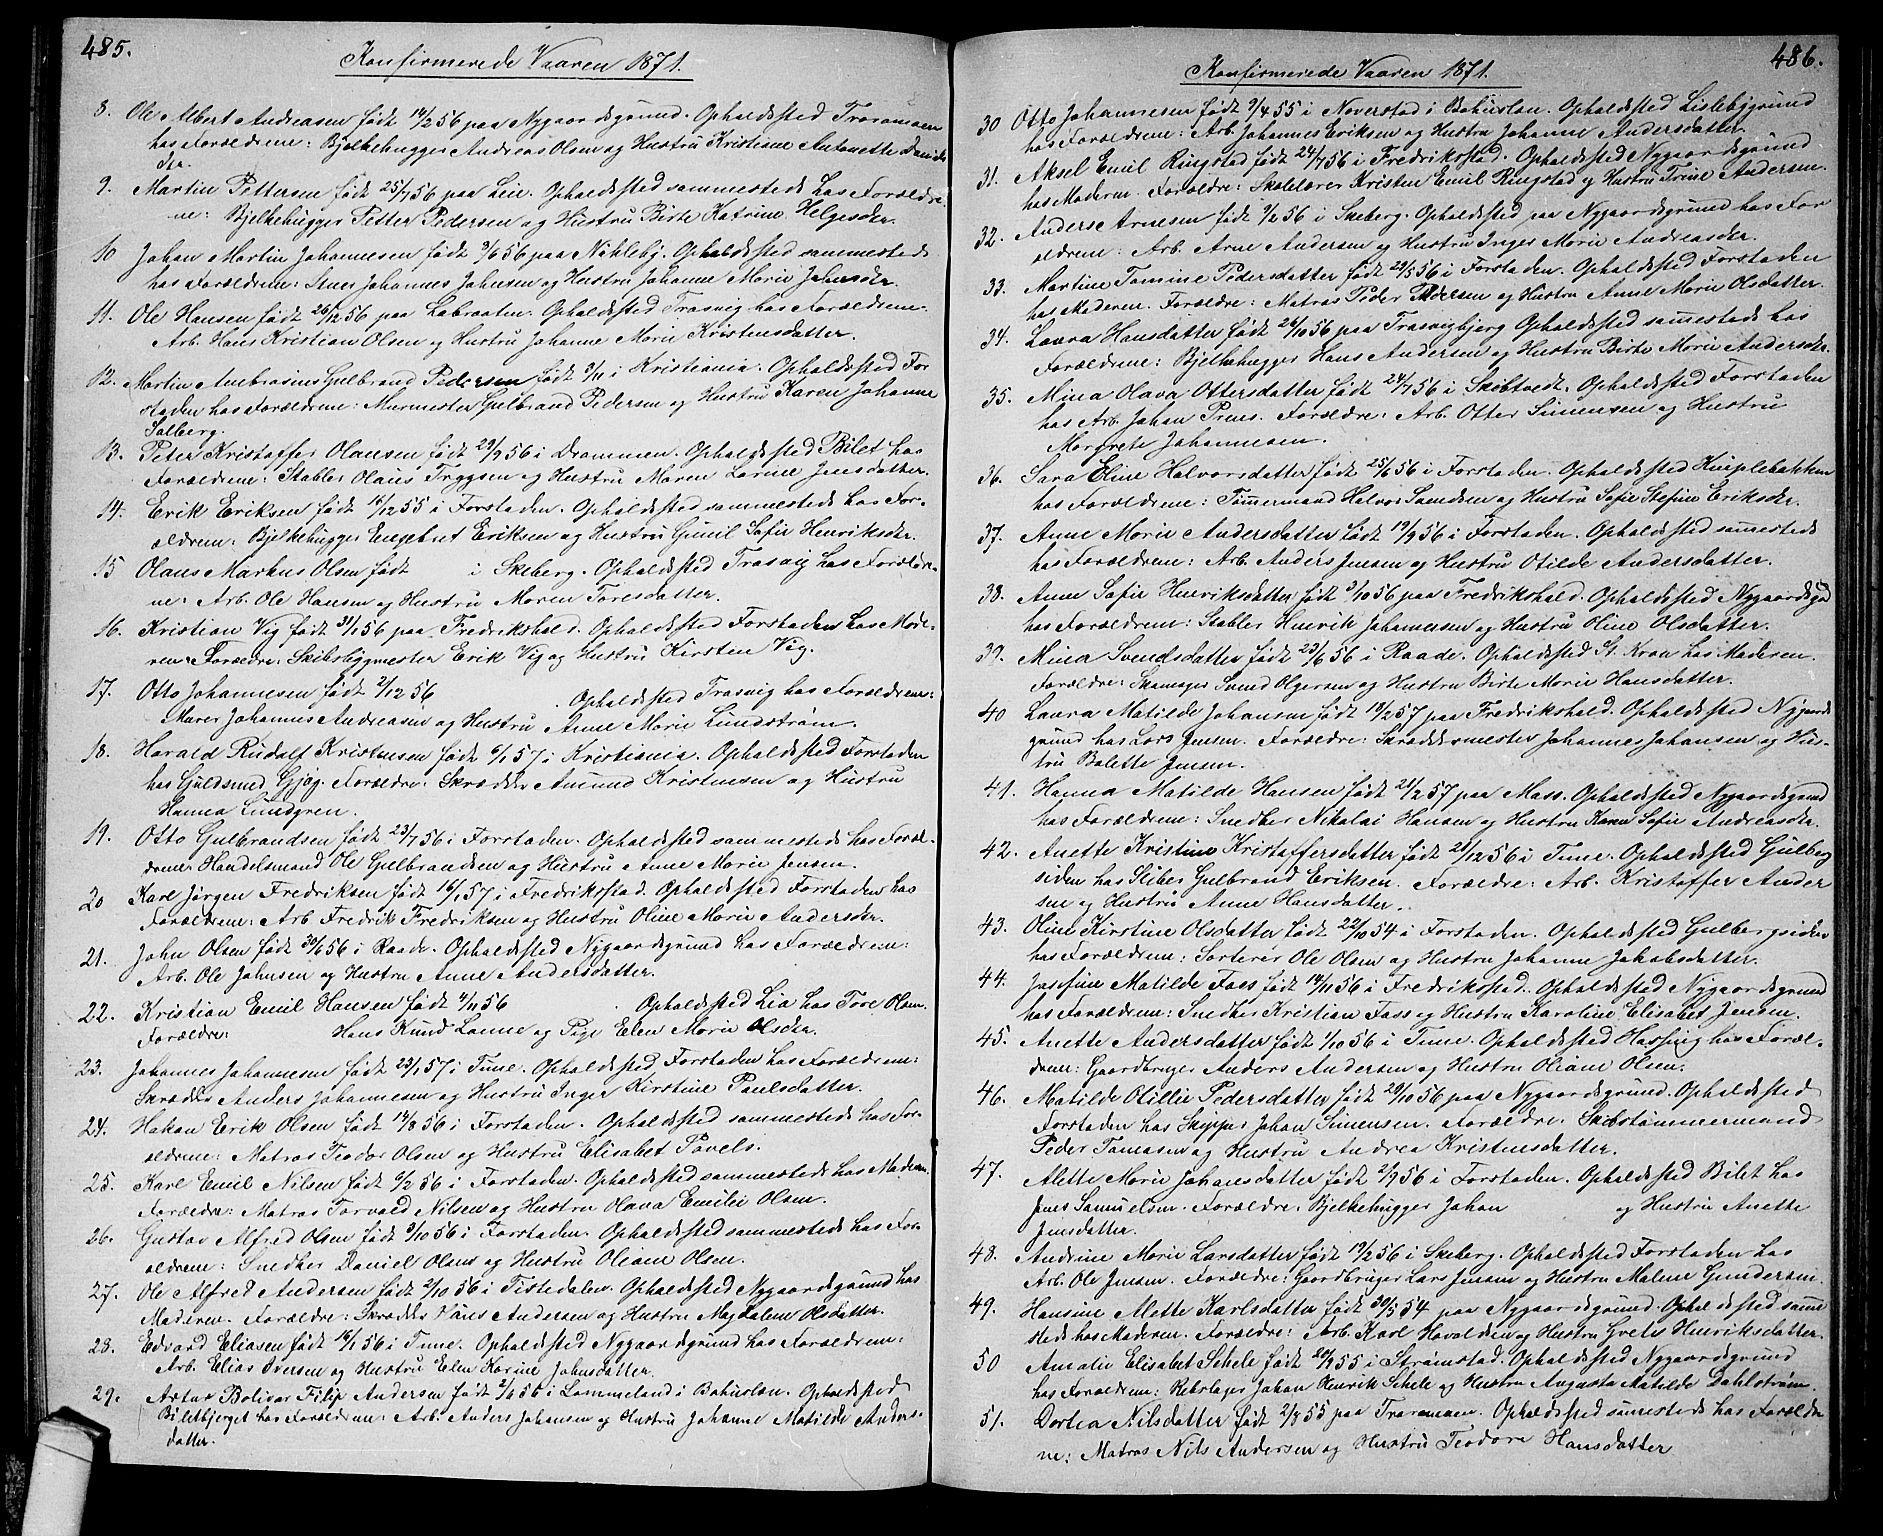 485.
Konfirmerede Vaaren 1871.
8. Ole Albert Andreasen født 14/2 56 paa Nygaardsgrund. Opholdssted Traramoen
hos Forældrene: Bjelkehugger Andreas Olsen og Hustru Kristine Antonette
9. Martin Pettersen født 25/7 56 paa Leie. Opholdssted sammesteds hos Forældre
ne: Bjelkehugger Petter Pedersen og Hustru Birte Katrine Helgesdtr.
10 Johan Martin Johannesen født 9/6 56 paa Nikleby. Opholdssted sammesteds
hos Forældrene: Snes Johannes Johnsen og Hustru Johanne Marie Johnsdtr.
11. Ole Hansen født 26/12 56 paa Labraaten. Opholdssted Trasvig hos Forældrene.
Arb. Hans Kristian Olsen og Hustru Johanne Marie Kristensdatter.
12. Martin Ambrosius Gulbrand Pedersen født 5/11 i Kristiania. Opholdssted For
staden hos Forældrene: Murmester Gulbrand Pedersen og Hustru Karen Johanne
Solberg.
13. Peter Kristoffer Olausen født 29/9 56 i Drammen. Opholdssted Bilet hos
Forældrene: Stabler Olaus Trygsen og Hustru Maren Lovine Jensdatter.
14. Erik Eriksen født 16/12 55 i Forstaden. Opholdssted sammesteds hos For-
ældrene: Bjelkehugger Engebret Eriksen og Hustru Gunil Sofie Henriksdtr.
15 Olaus Markus Olsen født i Skeberg. Opholdssted Trasvig hos Forældre-
ne: Arb. Ole Hansen og Hustru Maren Toresdatter.
16. Kristian Vig født 31/1 56 paa Fredrikshald. Opholdssted Forstaden hos Mode-
ren. Forældre: Skibsbygmester Erik Vig og Hustru Kirsten Vig.
17. Otto Johannesen født 2/12 56 . Opholdssted Trasvig hos Forældrene:
Murer Johannes Andreasen og Hustru Anne Marie Lundstrøm.
18. Harald Rudolf Kristensen født 6/1 57 i Kristiania. Opholdssted Forstaden
hos Guldsmed Gjøg. Forældre: Skrædder Amund Kristensen og Hustru
Hanna Lindgren.
19. Otto Gulbrandsen født 23/7 56 i Forstaden. Opholdssted sammesteds hos Foræl-
drene: Handelsmand Ole Gulbrandsen og Hustru Anne Marie Jensen.
20 Karl Jørgen Fredriksen født 16/1 57 i Fredrikstad. Opholdssted Forstaden hos
Forældrene: Arb Fredrik Fredriksen og Hustru Oline Marie Andersdtr.
21. John Olsen født 30/6 56 i Raade. Opholdssted Nygaardsgrund hos Forældrene:
Arb. Ole Johnsen og Hustru Anne Andersdatter.
22. Kristian Emil Hansen født 4/11 56 . Opholdssted Lia hos Tore Olsen.
Forældre: Hans Knud Lanne og Pige Elen Marie Olsdtr.
23. Johannes Johannesen født 23/1 57 i Tune. Opholdssted Forstaden hos Forældrene:
Skrædder Anders Johannesen og Hustru Inger Kirstine Paulsdatter.
24. Hakon Erik Olsen født 14/8 56 i Forstaden. Opholdssted sammesteds hos For-
ældrene: Matros Teodor Olsen og Hustru Elisabet Povels.
25. Karl Emil Nilsen født 6/2 56 i Forstaden. Opholdssted sammesteds hos Moderen.
Forældre: Matros Torvald Nilsen og Hustru Olava Emilie Olsen.
26. Gustav Alfred Olsen født 3/10 56 i Forstaden. Opholdssted sammesteds hos For-
ældrene: Snedker Daniel Olsen og Hustru Oliane Olsen.
27. Ole Alfred Andersen født 2/10 56 i Tistedalen. Opholdssted Nygaardsgrund hos
Moderen. Forældre: Skrædder Andersen og Hustru Magdalene Olsdatter.
28. Edvard Eliasen født 16/1 56 i Tune. Opholdssted Nygaardsgrund hos Forældrene:
Arb. Elias Iversen og Hustru Elen Karine Johnsdatter.
29. Artur Bolivar Filip Andersen født 2/6 56 i Lommeland i Bohuslæn. Opholdssted
Biletbjerget hos Forældrene: Arb. Anders Johansen og Hustru Johanne Matilde Anders-
datter.
486.
Konfirmerede Vaaren 1871.
30 Otto Johannesen født 9/4 55 i Noverstad i Bohuslen. Opholdssted Lislebygrund
hos Forældrene: Arb. Johannes Eriksen og Hustru Johanne Andersdatter.
31. Aksel Emil Ringstad født 24/7 56 i Fredrikstad. Opholdssted Nygaardsgrund
hos Moderen. Forældre: Skolelærer Kristen Emil Ringstad og Hustru Trine Andersen.
32. Anders Arnesen født 1/2 56 i Skeberg. Opholdssted paa Nygaardsgrund hos For
ældrene: Arb. Arne Andersen og Hustru Inger Marie Andreasdtr.
33. Martine Tomine Pedersdatter født 29/5 56 i Forstaden. Opholdssted Forstaden
hos Moderen. Forældre: Matros Peder Pedersen og Hustru Anne Marie Olsdatter.
34. Laura Hansdatter født 26/10 56 paa Trasvigbjerg Opholdssted sammesteds hos
Forældrene: Bjelkehugger Hans Andersen og Hustru Birte Marie Andersdtr.
35. Mina Olava Ottersdatter født 24/7 56 i Skibtvedt. Opholdssted Forstaden
hos Arb. Johan Prøis. Forældre: Arb. Otter Simensen og Hustru
Margrete Johannesen.
36. Sara Eline Halvorsdatter født 25/6 56 i Forstaden. Opholdssted Kniplebakken
hos Forældrene: Tømmermand Halvor Svendsen og Hustru Sofie Stefine Eriksdtr.
37. Anne Marie Andersdatter født 19/9 56 i Forstaden. Opholdssted sammesteds
hos Forældrene: Arb. Anders Jensen og Hustru Otilde Andersdatter.
38. Anne Sofie Henriksdatter født 3/10 56 paa Fredrikshald. Opholdssted Nygaardsgd
hos Forældrene: Stabler Henrik Johannesen og Hustru Oline Olsdatter.
39. Mina Svendsdatter født 23/6 56 i Raade. Opholdssted St. Kron hos Moderen.
Forældre: Skomager Svend Olgersen og Hustru Birte Marie Hansdatter.
40 Laura Matilde Johansen født 19/2 57 paa Fredrikshald. Opholdssted Nygaards
grund hos Lars Jensen. Forældre: Skræddermester Johannes Johansen og Hus-
tru Bolette Jensen.
41. Hanna Matilde Hansen født 21/2 57 paa Moss. Opholdssted Nygaardsgrund
hos Forældrene: Snedker Nikolai Hansen og Hustru Karen Sofie Andreasdtr.
42. Anette Kristine Kristoffersdatter født 28/12 56 i Tune. Opholdssted Gulberg
siden hos Sliber Gulbrand Eriksen. Forældre: Arb. Kristoffer Ander
sen og Hustru Anne Hansdatter.
43. Oline Kirstine Olsdatter født 22/10 54 i Forstaden. Opholdssted Gulbergsiden
hos Forældrene: Sorterer Ole Olsen og Hustru Johanne Jakobsdatter.
44. Josefine Matilde Foss født 14/11 56 i Fredrikstad. Opholdssted Nygaardsgrund
hos Forældrene: Snedker Kristian Foss og Hustru Karoline Elisabet Jensen.
45. Anette Andersdatter født 1/10 56 i Tune. Opholdssted Hassing hos Foræl-
drene: Gaardbruger Anders Andersen og Hustru Oliane Olsen.
46. Matilde Otillie Pedersdatter født 20/10 56 paa Nygaardsgrund. Opholdssted
Forstaden hos Skipper Johan Simensen. Forældre: Skibstømmermand
Peder Tomasen og Hustru Andrea Kristensdatter.
47. Alette Marie Johansdatter født 2/9 56 i Forstaden. Opholdssted Bilet hos
Jens Samuelsen. Forældre: Bjelkehugger Johan og Hustru Anette
Jensdatter.
48. Andrine Marie Larsdatter født 19/2 56 i Skeberg. Opholdssted Forstaden hos
Arb. Ole Jensen. Forældre: Gaardbruger Lars Jensen og Hustru Malene Gundersen.
49. Hansine Mette Karlsdatter født 30/5 54 paa Nygaardsgrund. Opholdssted samme
sted hos Moderen. Forældre: Arb. Karl Havoldsen og Hustru Grete Henriksdatter.
50 Amalie Elisabet Schele født 20/9 55 i Strømstad. Opholdssted Nygaardsgrund
hos Forældrene: Rebslager Johan Henrik Schele og Hustru Augusta Matilde Dahlstrøm.
51. Dortea Nilsdatter født 2/8 55 paa Traramoen. Opholdssted sammesteds hos Forældre
ne: Matros Nils Andersen og Hustru Teodore Hansdatter